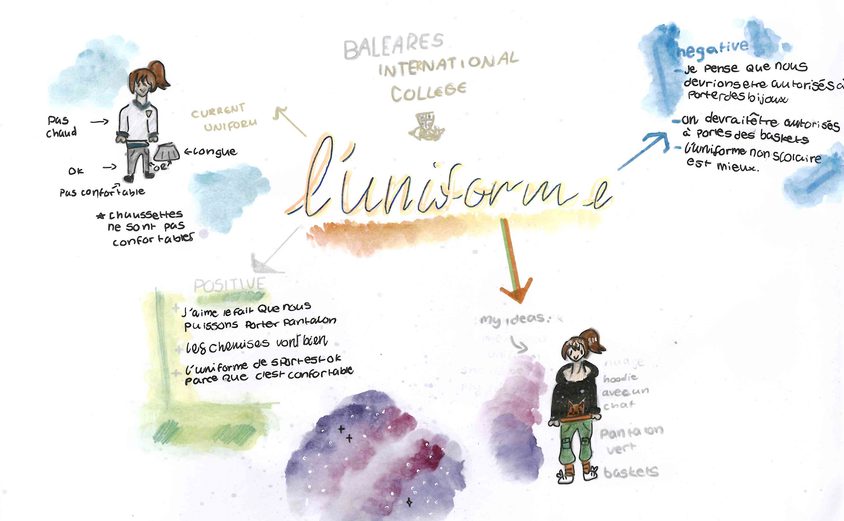 BALEARES
INTERNATIONAL
COLLEGE
l'uniforme
CURRENT
UNIFORM
Pas
chaud
OK
"OR"
longue
Pas confortable
* Chaussettes
ne sont pas
confortables
negative
- Je pense que nous
devrions etre autorisés à
porter des bijoux
- on devrait être autorisés
à porter des baskets
- L'uniforme non scolaire
est mieux.
POSITIVE
+ J'aime le fait que nous
puissons porter pantalon
+ Les chemises vont bien
+ L'uniforme de sport est ok
parce que c'est confortable
my ideas:
hoodie
avec un
chat
Pantalon
vert
baskets